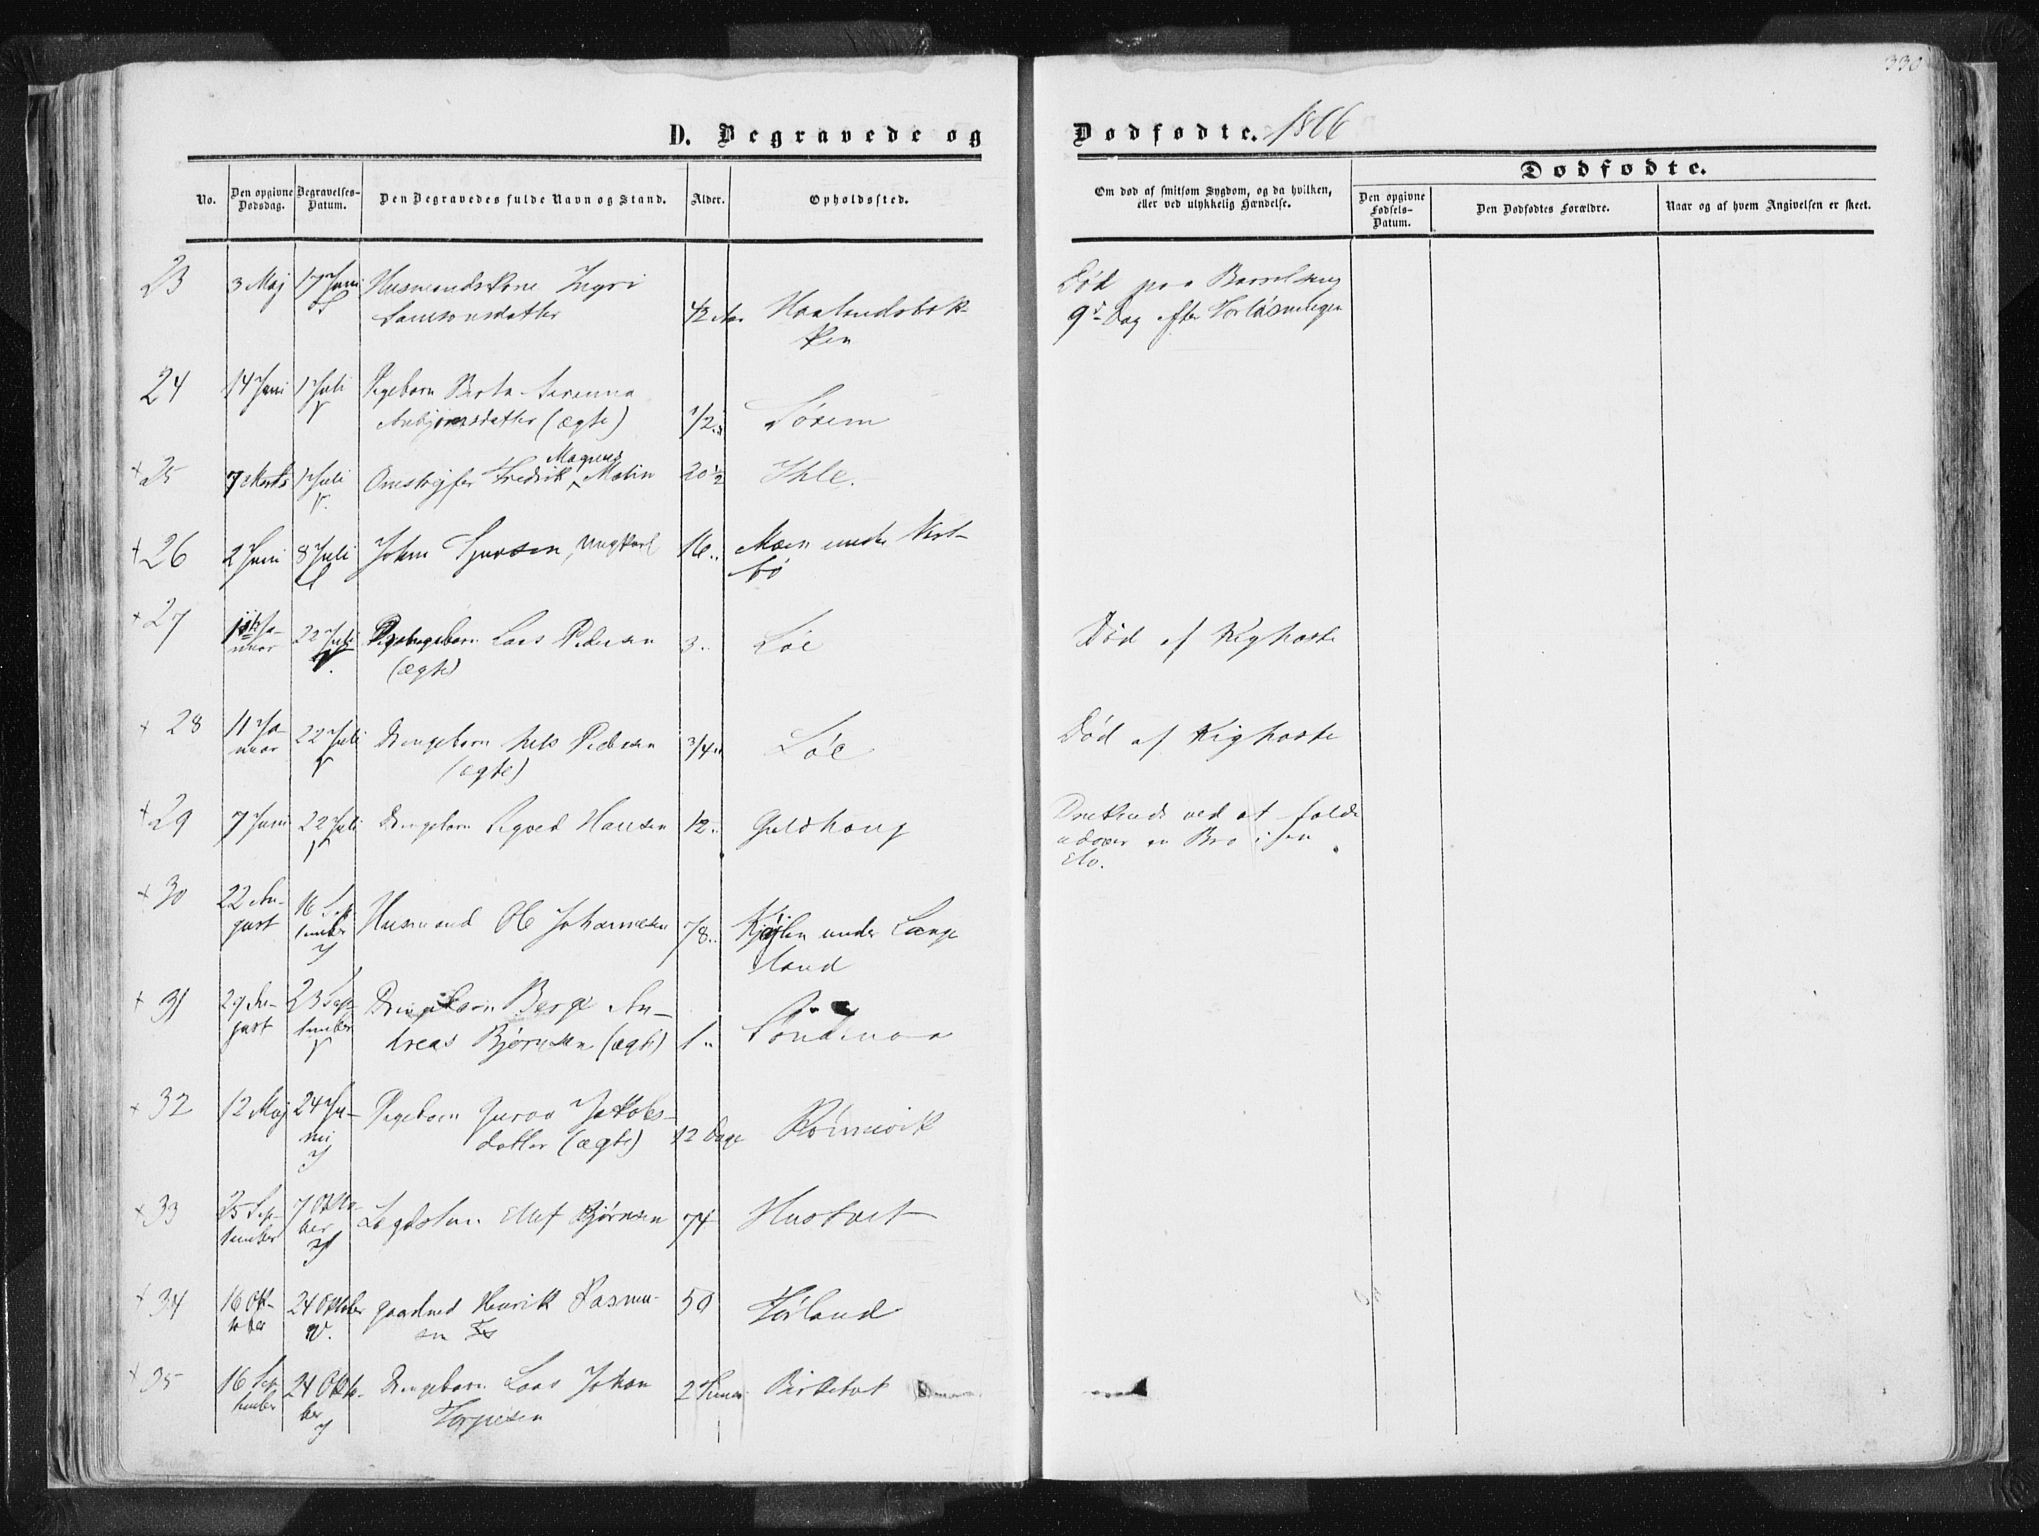 330
D. Begravede og Dødfødte. 1866
Dødfødte.
No.
Den opgivne Dødsdag.
Begravelses-Datum.
Den Begravedes fulde Navn og Stand.
Alder.
Opholdssted.
Om død af smitsom Sygdom, og da hvilken,
eller ved ulykkelig Hændelse.
Den opgivne Fødsels-Datum.
Den Dødfødtes Forældre.
Naar og af hvem Angivelsen er skeet.
23 3 Maj 17 Juni Husmandskone Ingri
Samsonsdatter 42 Aar Haalandsbak-
ken
Død paa Barselseng
9de Dag efter Forløsningen
24 14 Juni 1 Juli Pigebarn Berta
(ægte) 1/2 Sørem
+ 25 7 Marts 1 Juli Fredrik Magnus Malin 20 1/2 Ihle.
+ 26 2 Juni 8 Juli John Ungkarl 16 Moen under
bø
+ 27 22 Juli Lars Pedersen 3 Løe
(ægte)
Død af Kighoste
+ 28 11 Ja-
nuar 22 Juli Drengebarn Nels Pedersen 3/4 Løe
(ægte)
Død af Kighoste
+ 29 7 Juni 22 Juli Drengebarn Sigved Hansen 12 Guldhaug
Druknede ved at falde
udover en Bro i en
Elv.
+ 30 22 Au-
gust 16 Sep-
tember Husmand Ole Johannesen 78 under Lange
land
+ 31 29 Au-
gust 23 Sep-
tember Drengebarn Berge An-
dreas Bjørnsen (ægte) 1 Søndenaa
+ 32 12 Maj 24 Ju-
ni Pigebarn Guroa Jakobs-
datter (ægte) 12 Dage Rønnevik
+ 33 25 Sep-
tember 7 Okto-
ber Lægdslem Ellef Bjørnsen 74 Hustvet
+ 34 16 Ok-
tober 24 Oktober Gaardmd Henrik Rasmu-
sen 50 Førland
+ 35 16 Sep-
tember 24 Okto-
ber Drengebarn Lars Johan
Torgersen 2 Timer Birketvet